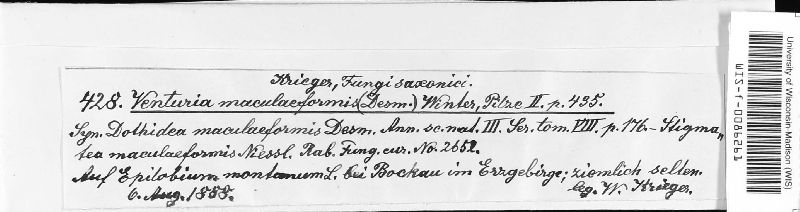 Krieger, Fungi saxonici.
428. Venturia maculaeformis (Desm.) Winter, Pilze II. p. 435.
Syn. Dothidea maculaeformis Desm. Ann. sc. nat. III. Ser. tom. VIII. p. 176. - Stigma„
tea maculaeformis Niessl. Rab. Fung. eur. No. 2652.
Auf Epilobium montanum L. bei Bockau im Erzgebirge; ziemlich selten.
6. Aug. 1888. leg. W. Krieger.
University of Wisconsin-Madison (WIS)
WIS-f-0086261